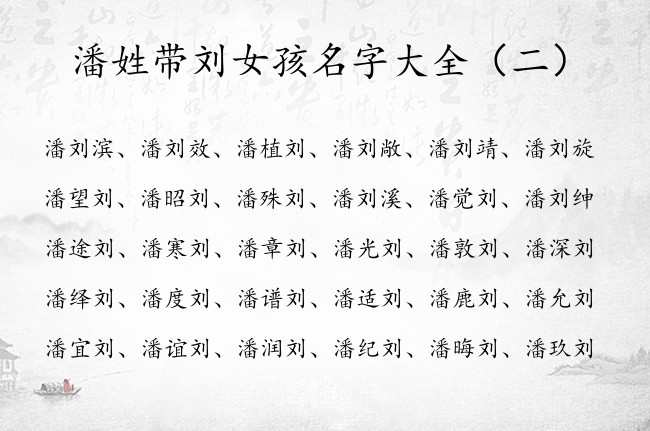 潘姓带刘女孩名字大全（二）
潘刘滨、潘刘效、潘植刘、潘刘敞、潘刘靖、潘刘旋
潘望刘、潘昭刘、潘殊刘、潘刘溪、潘觉刘、潘刘绅
潘途刘、潘寒刘、潘章刘、潘光刘、潘敦刘、潘深刘
潘绎刘、潘度刘、潘谱刘、潘适刘、潘鹿刘、潘允刘
潘宜刘、潘谊刘、潘润刘、潘纪刘、潘晦刘、潘玖刘